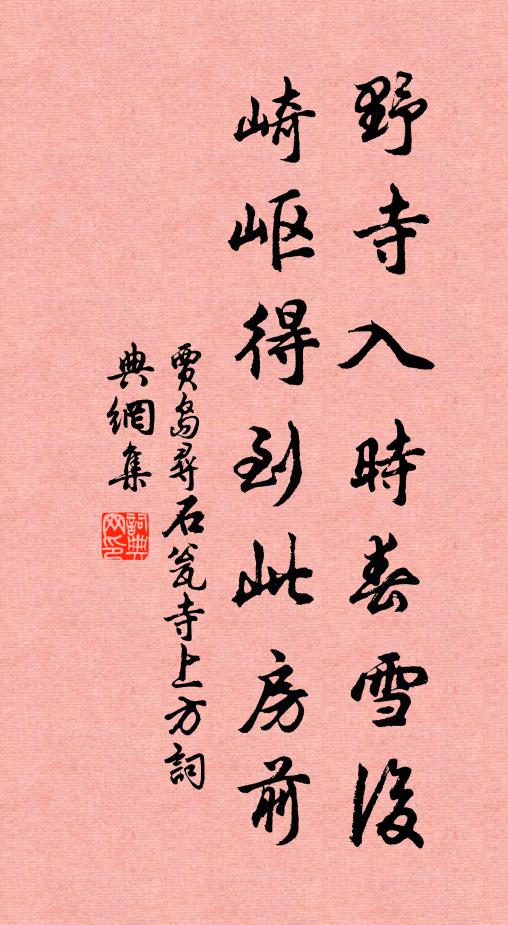 野寺入時春雪後
崎岖得到此房前
賈島尋石瓮寺上方詞
典網集
詞典網印